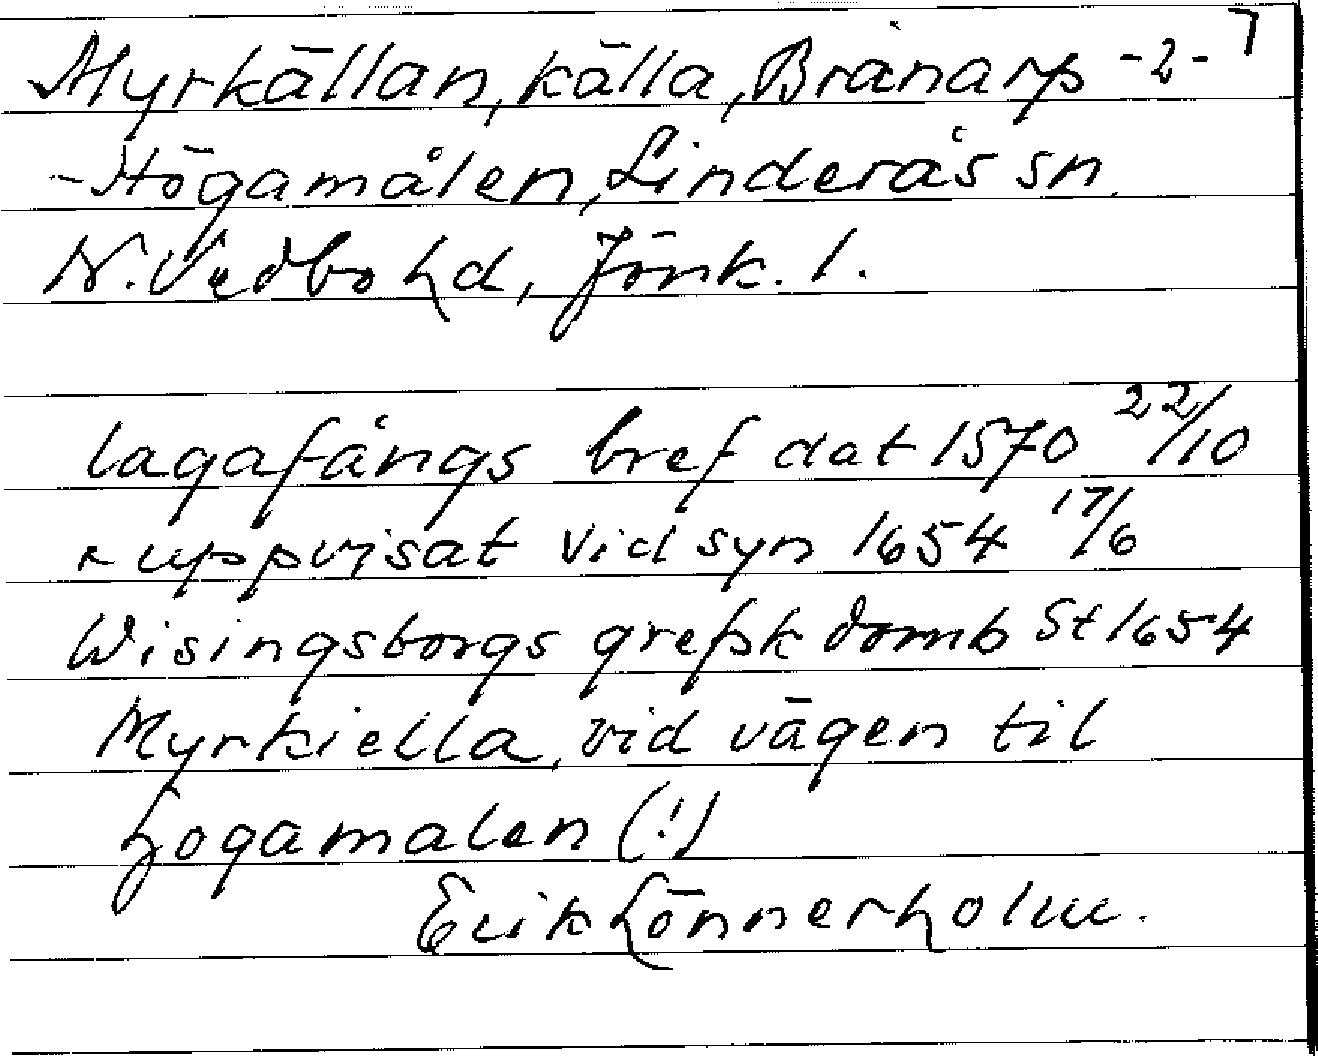 Myrkällan, källa, Brånarp -2- 7
-Högamålen, Linderås sn.
N. Vedbo hd, Jönk. l.
lagafångs bref dat 1570 22/10
uppvisat vid syn 1654 17/6
Wisingsborgs grefsk domb St 1654
Myrkiella, vid vägen til
hogamalen (!)
Erik Lönnerholm.